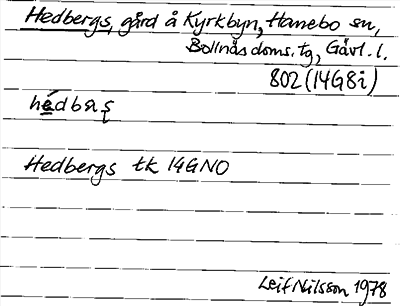 Hedbergs, gård å Kyrkbyn, Hanebo sn,
Bollnäs doms. tg, Gävl. l.
802 (14G8i)
hédbaş
Hedbergs tk 14GNO
Leif Nilsson 1978